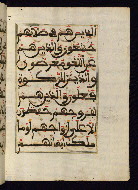 الذين هم في صلاتهم
خشعون والذين هم
عن اللغو معرضون
والذين هم للزكوة
فعلون والذين هم
لفروجهم حفظون
إلا على أزوجهم أو ما
ملكت أيمنهم